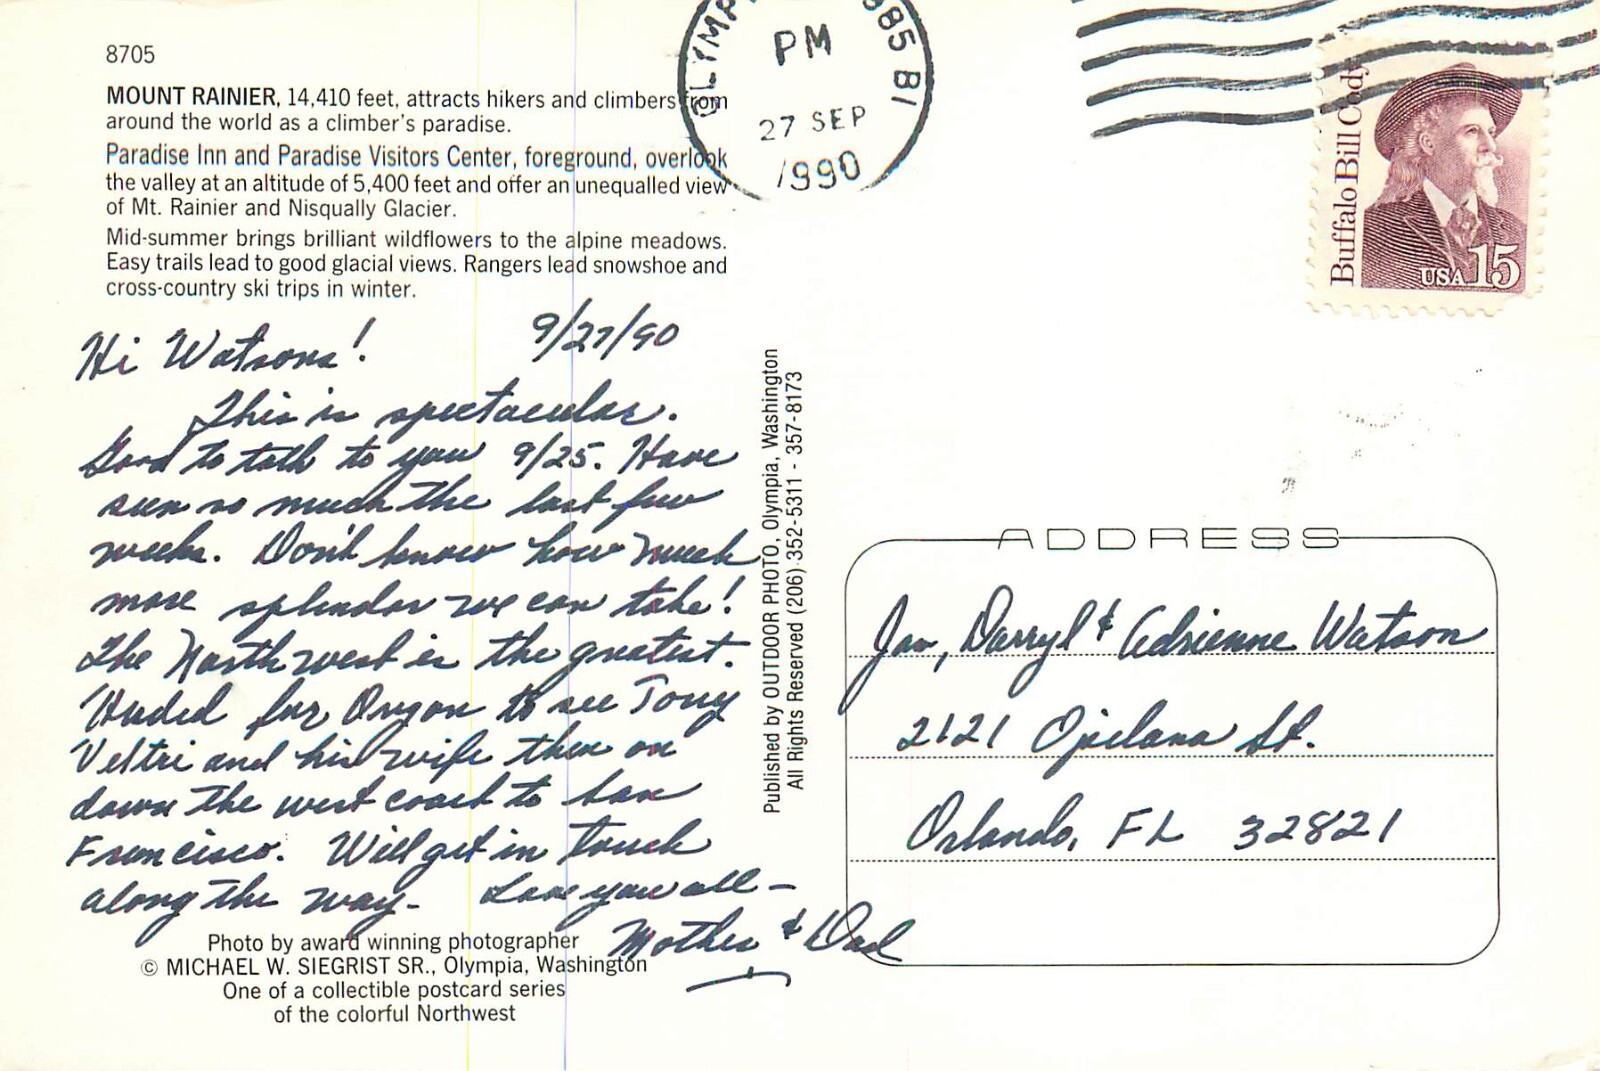 8705
MOUNT RAINIER, 14,410 feet, attracts hikers and climbers from
around the world as a climber's paradise.
Paradise Inn and Paradise Visitors Center, foreground, overlook
the valley at an altitude of 5,400 feet and offer an unequalled view
of Mt. Rainier and Nisqually Glacier.
Mid-summer brings brilliant wildflowers to the alpine meadows.
Easy trails lead to good glacial views. Rangers lead snowshoe and
cross-country ski trips in winter.
9/27/90
Hi Watsons!
This is spectacular.
Good to talk to you 9/25. Have
seen so much the last few
weeks. Don't know how much
more splendor we can take!
The Northwest is the greatest.
Headed for Oregon to see Tony
Veltri and his wife then on
down the west coast to San
Francisco. Will get in touch
along the way- Love you all -
Mother & Dad
Photo by award winning photographer
© MICHAEL W. SIEGRIST SR., Olympia, Washington
One of a collectible postcard series
of the colorful Northwest
Published by OUTDOOR PHOTO, Olympia, Washington
All Rights Reserved (206) 352-5311 - 357-8173
PM
27 SEP
1990
985 BI
Buffalo Bill Cody
USA 15
ADDRESS
Jan, Darryl & Adrienne Watson
2121 Opelana St.
Orlando, FL 32821